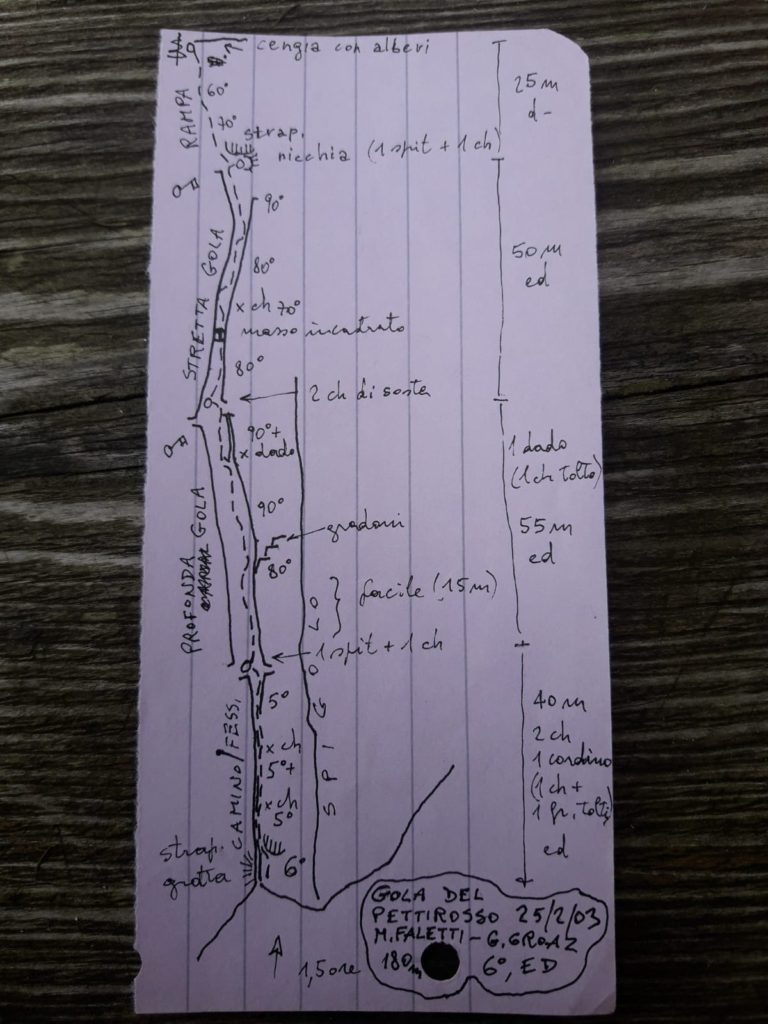 cengia con alberi
25 m
d-
RAMPA
60°
70°
strap.
nicchia (1 spit + 1 ch)
90°
STRETTA GOLA
80°
50 m
ed
x ch 70°
masso incastrato
80°
2 ch di sosta
90°+
x dado
1 dado
(1 ch tolto)
55 m
ed
PROFONDA
GOLA
90°
gradoni
80°
facile (15 m)
SPIGOLO
1 spit + 1 ch
CAMINO/FESS.
5°
x ch
5°+
x ch
5°
40 m
2 ch
1 cordino
(1 ch +
1 fr. tolti)
ed
strap.
grotta
6°
1,5 ore
GOLA DEL
PETTIROSSO 25/2/03
M. FALETTI - G. GROAZ
180 m 6°, ED